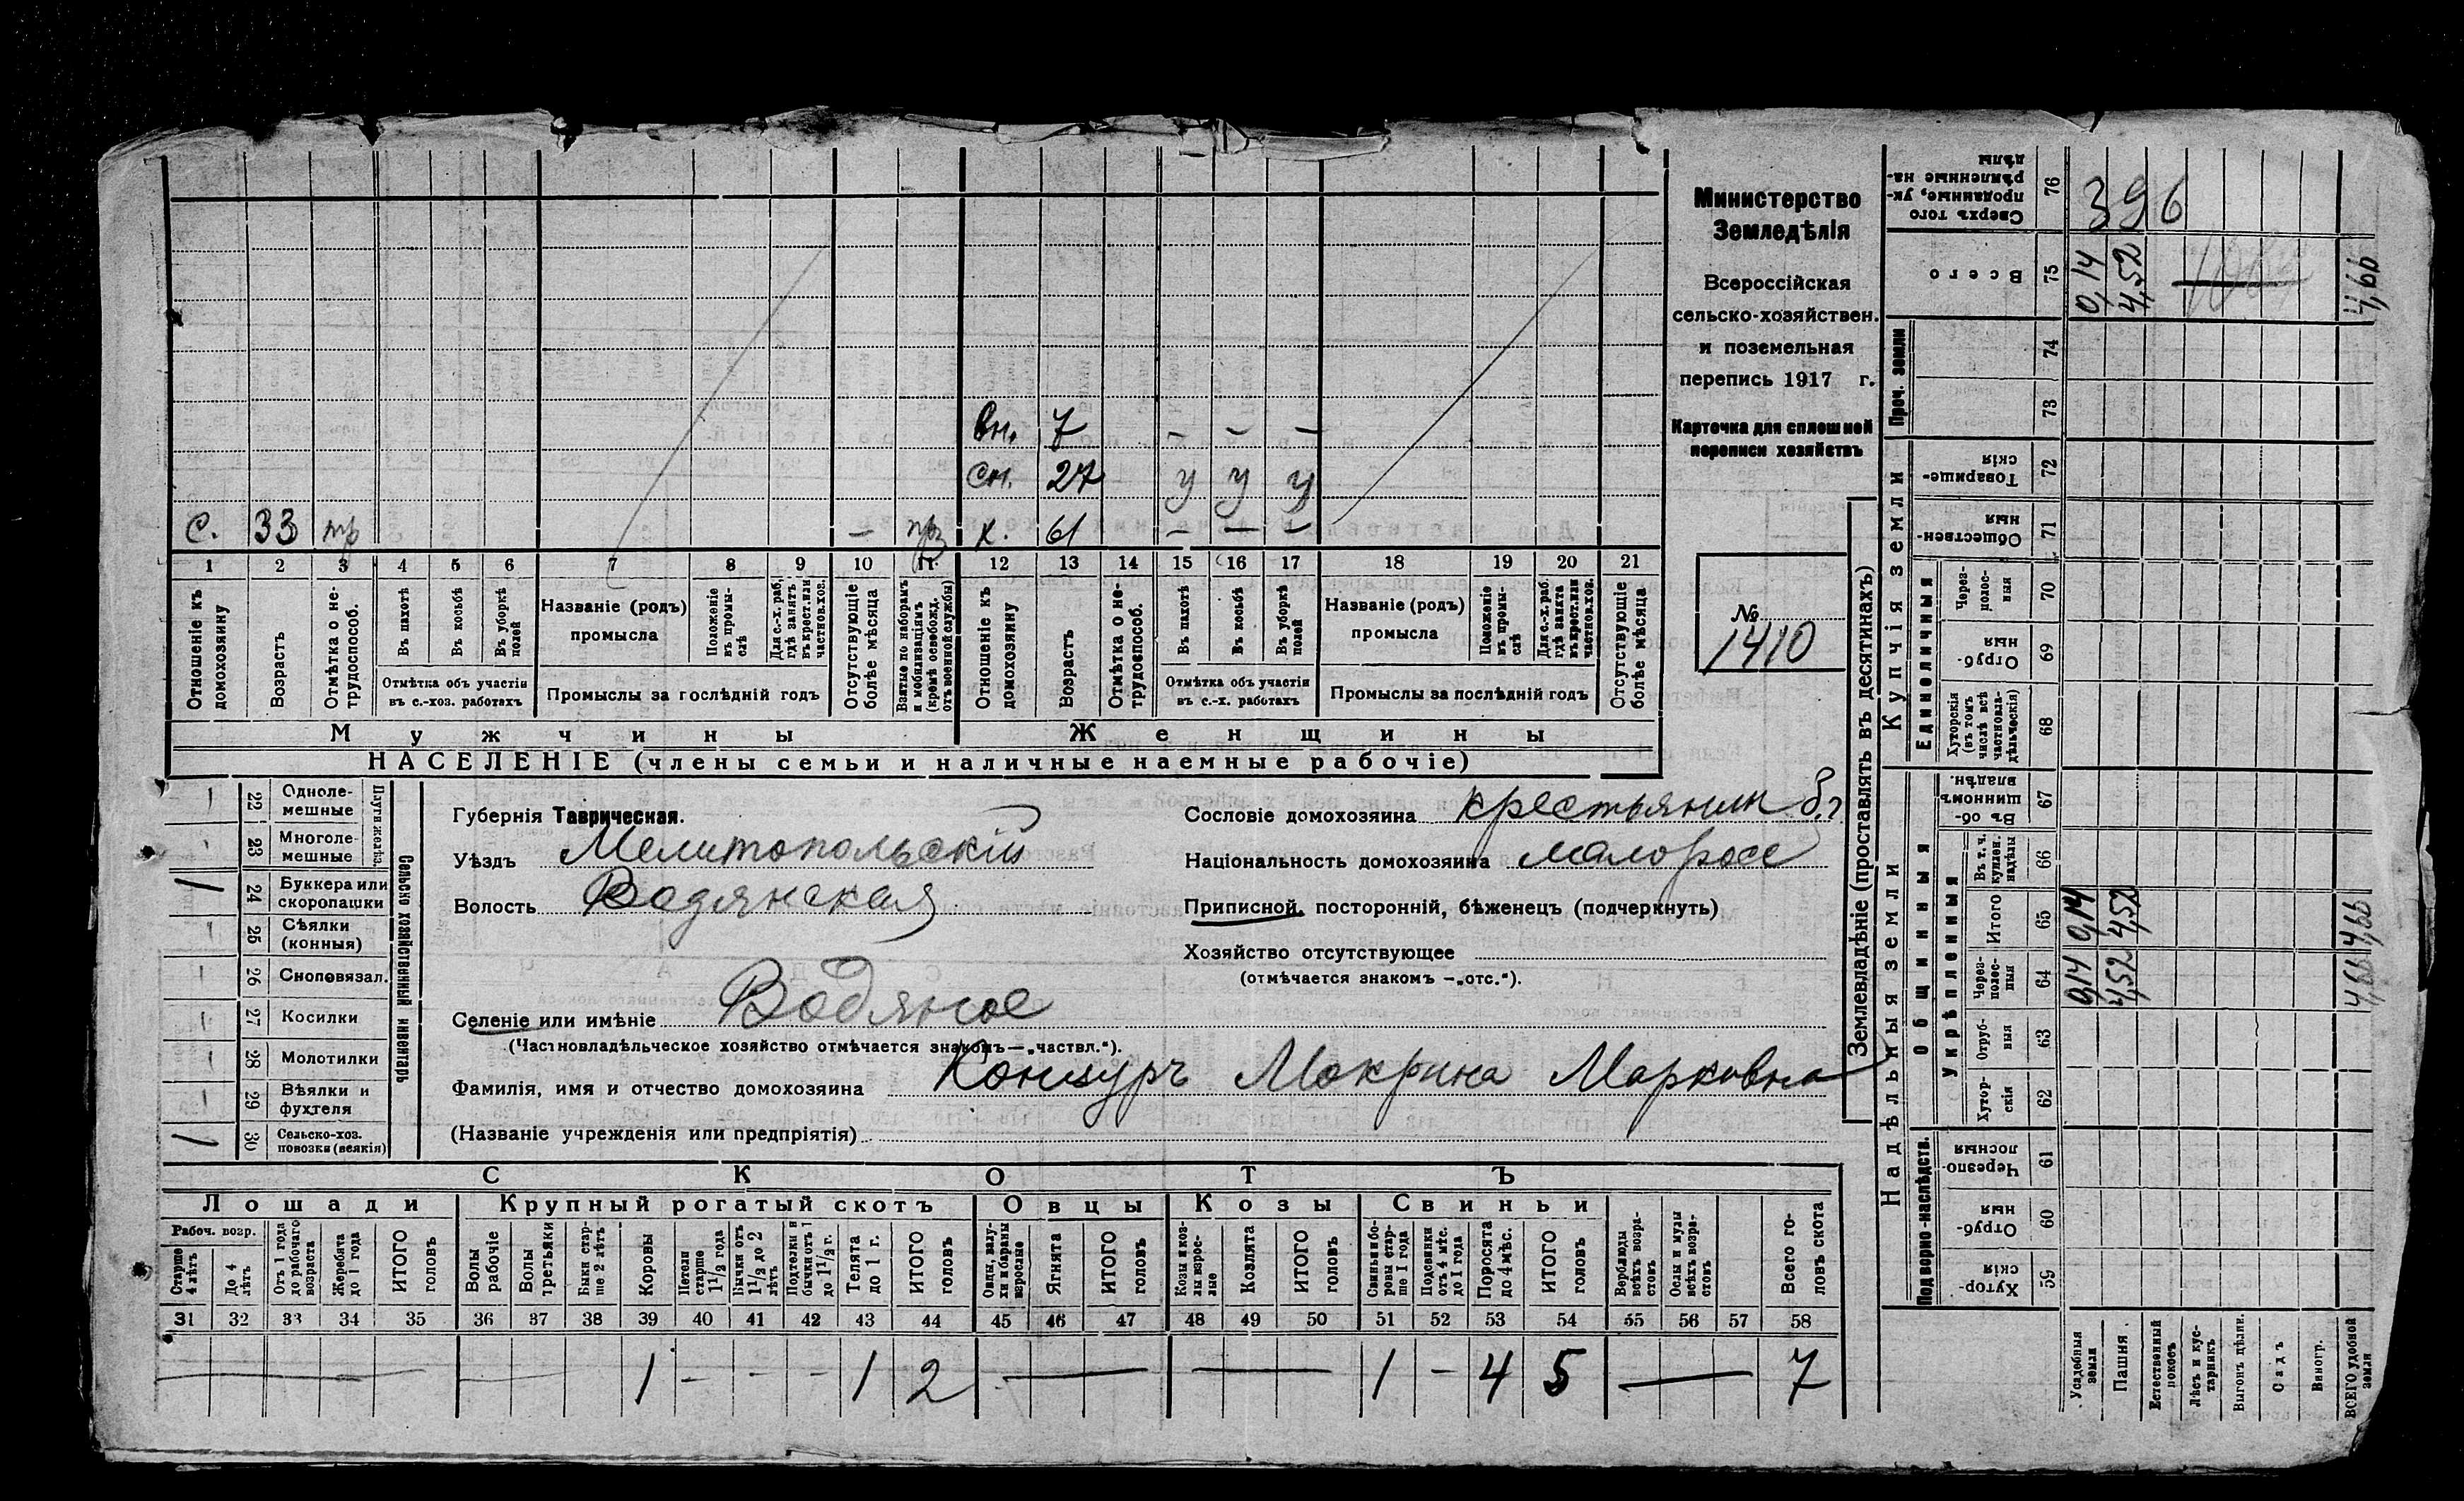 Министерство
Земледѣлія
Всероссійская
сельско-хозяйствен.
и поземельная
перепись 1917 г.
Карточка для сплошной
переписи хозяйствъ
№
1410
вн. 7 – – –
сн. 27 у у у
с. 33 – к. 61 – – –
1 2 3 4 5 6 7 8 9 10 11 12 13 14 15 16 17 18 19 20 21
Отношеніе къ домохозяину
Возрастъ
Отмѣтка о нетрудоспособ.
Въ пахотѣ
Въ косьбѣ
Въ уборкѣ полей
Отмѣтка объ участіи
въ с.-хоз. работахъ
Названіе (родъ)
промысла
Положеніе въ промыслѣ
Для с.-х. раб. гдѣ занятъ въ крест. или частнов. хоз.
Промыслы за послѣдній годъ
Отсутствующіе болѣе мѣсяца
Взятые по наборамъ и мобилизаціямъ (кромѣ освобожд. отъ военной службы)
Отношеніе къ домохозяину
Возрастъ
Отмѣтка о нетрудоспособ.
Въ пахотѣ
Въ косьбѣ
Въ уборкѣ полей
Отмѣтка объ участіи
въ с.-х. работахъ
Названіе (родъ)
промысла
Положеніе въ промыслѣ
Для с.-х. раб. гдѣ занята въ крест. или частнов. хоз.
Промыслы за послѣдній годъ
Отсутствующіе болѣе мѣсяца
Мужчины Женщины
НАСЕЛЕНІЕ (члены семьи и наличные наемные рабочіе)
Сельско хозяйственный инвентарь
Плуги желѣз.
22 Однолемешные
23 Многолемешные
1 24 Буккера или скоропашки
25 Сѣялки (конныя)
26 Сноповязал.
27 Косилки
28 Молотилки
29 Вѣялки и фухтеля
1 30 Сельско-хоз. повозки (всякія)
Губернія Таврическая.
Уѣздъ Мелитопольскій
Волость Водянская
Селеніе или имѣніе Водяное
(Частновладѣльческое хозяйство отмѣчается знакомъ—„частвл.“).
Сословіе домохозяина крестьянин
Національность домохозяина малоросс
Приписной, посторонній, бѣженецъ (подчеркнуть)
Хозяйство отсутствующее
(отмѣчается знакомъ —„отс.“).
Фамилія, имя и отчество домохозяина Мокрина Марковна
(Названіе учрежденія или предпріятія)
СКОТЪ
Лошади Крупный рогатый скотъ Овцы Козы Свиньи
Рабоч. возр.
Старше 4 лѣтъ
До 4 лѣтъ
Отъ 1 года до рабочаго возраста
Жеребята до 1 года
ИТОГО головъ
Волы рабочіе
Волы третьяки
Быки старше 2 лѣтъ
Коровы
Нетели старше 1 1/2 года
Бычки отъ 1 1/2 до 2 лѣтъ
Подтелки и бычки отъ 1 до 1 1/2 г.
Телята до 1 г.
ИТОГО головъ
Овцы, валухи и бараны взрослые
Ягнята
ИТОГО головъ
Козы и козлы взрослые
Козлята
ИТОГО головъ
Свиньи боровы старше 1 года
Подсвинки отъ 4 мѣс. до 1 года
Поросята до 4 мѣс.
ИТОГО головъ
Верблюды всѣхъ возрастовъ
Ослы и мулы всѣхъ возрастовъ
Всего головъ скота
31 32 33 34 35 36 37 38 39 40 41 42 43 44 45 46 47 48 49 50 51 52 53 54 55 56 57 58
1 - - - 1 2 — — 1 - 4 5 — 7
Землевладѣніе (проставлять въ десятинахъ)
Надѣльныя земли
Купчія земли
Проч. земли
Подворно-наслѣдств.
Общинныя
Укрѣпленныя
Единоличныя
Сверхъ того проданные, укрѣпленные надѣлы 76 396
Всего 75 0,14 4,52 4,66
74
73
Товарищескія 72
Общественныя 71
Черезполосныя 70
Отрубныя 69
Хуторскія (въ томъ числѣ всѣ частновладѣльческія) 68
Въ общинномъ владѣн. 67
Въ т. ч. куплен. надѣлы 66
Итого 65 0,14 4,52 4,66
Черезполосныя 64 0,14 4,52 4,66
Отрубныя 63
Хуторскія 62
Черезполосныя 61
Отрубныя 60
Хуторскія 59
Усадебныя земли
Пашня
Естественный покосъ
Лѣсъ и кустарникъ
Выгонъ дѣлим.
Садъ
Виногр.
ВСЕГО удобной земли